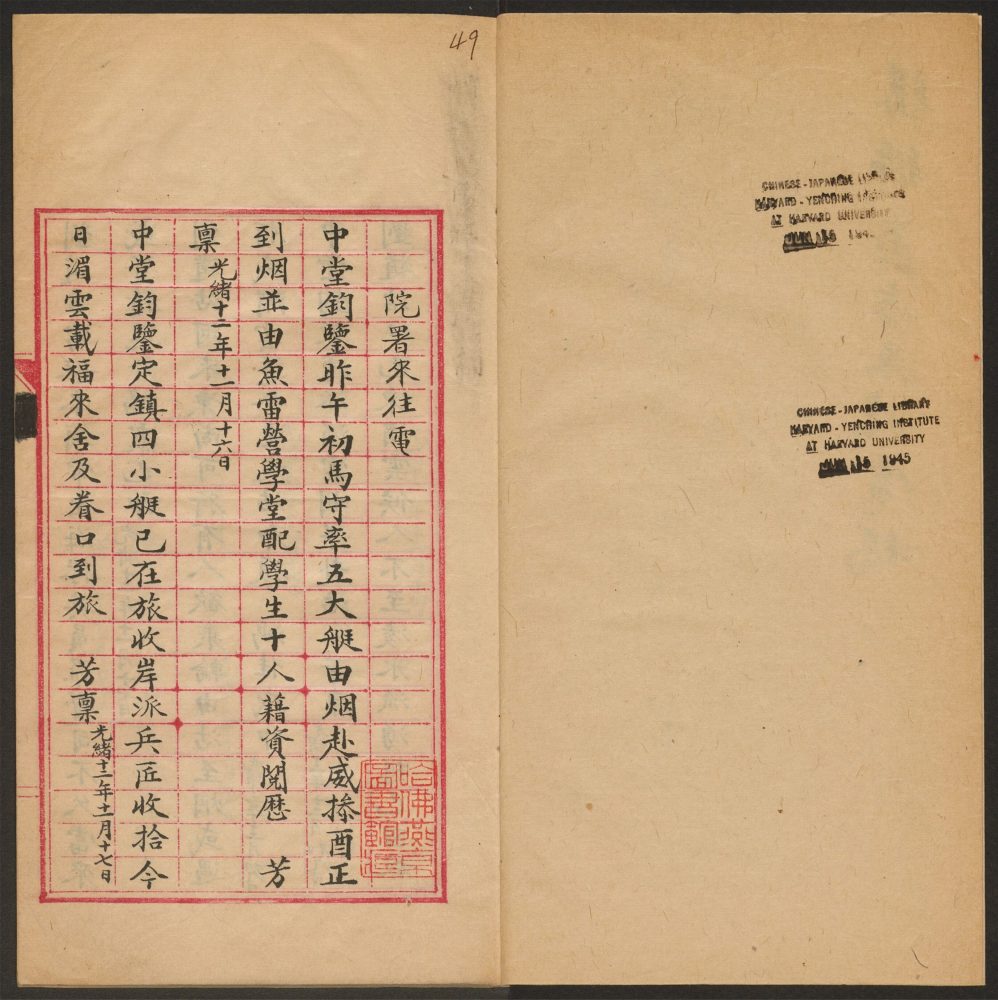 49
院署來往電
中堂鈞鑒昨午初馬守率五大艇由烟赴威操酉正
到烟並由魚雷營學堂配學生十人藉資閱歷 芳
稟光緒十二年十一月十六日
中堂鈞鑒定鎮四小艇已在旅收岸派兵匠收拾今
日湄雲載福來舍及眷口到旅 芳稟光緒十二年十一月十七日
哈佛燕京
圖書館
CHINESE-JAPANESE
HARVARD-YENCHING INSTITUTE
AT HARVARD UNIVERSITY
CHINESE-JAPANESE LIBRARY
HARVARD-YENCHING INSTITUTE
AT HARVARD UNIVERSITY
1945